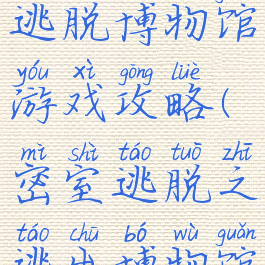 逃脱博物馆
yóu xì gōng lüè
游戏攻略(
mì shì táo tuō zhī
密室逃脱之
táo chū bó wù guǎn
逃出博物馆